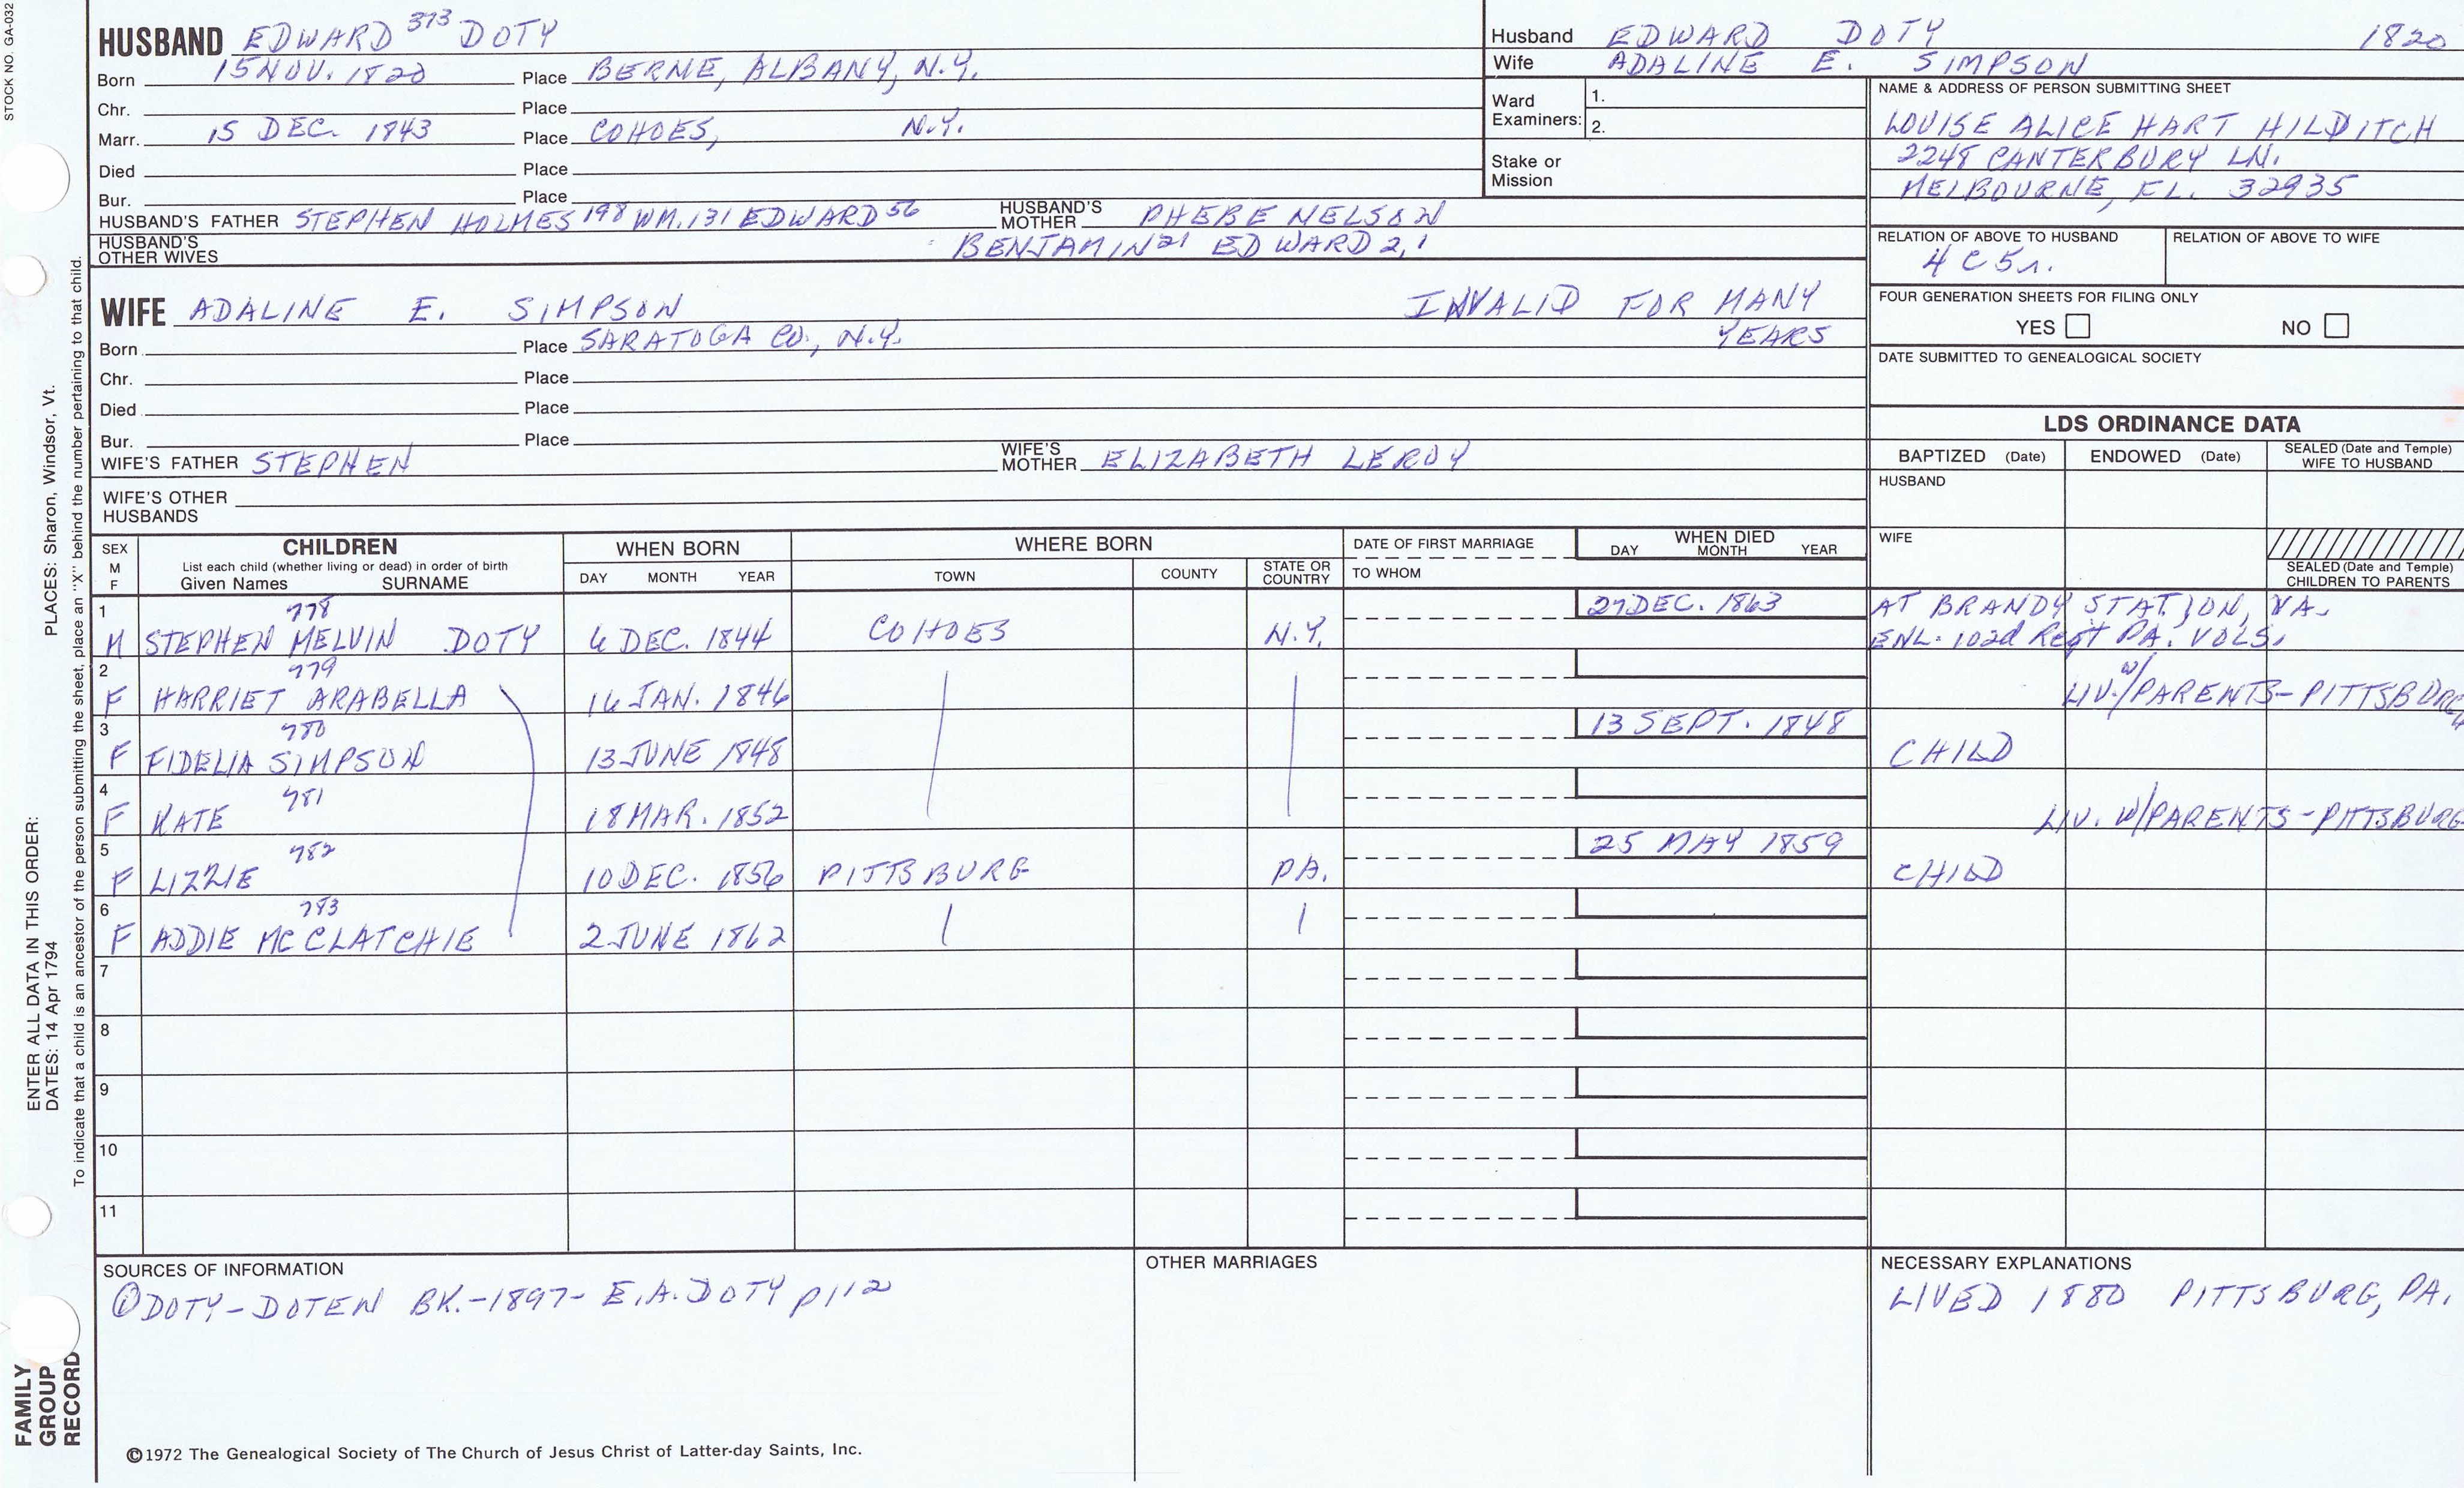 STOCK NO. GA-032
HUSBAND EDWARD 373 DOTY
Born 15 NOV. 1820 Place BERNE, ALBANY, N.Y.
Chr. Place
Marr. 15 DEC. 1843 Place COHOES, N.Y.
Died Place
Bur. Place
HUSBAND'S FATHER STEPHEN HOLMES 198 WM. 131 EDWARD 56 HUSBAND'S MOTHER PHEBE NELSON
HUSBAND'S OTHER WIVES BENJAMIN 21 EDWARD 2,1
Husband EDWARD DOTY 1820
Wife ADALINE E. SIMPSON
Ward Examiners: 1.
2.
Stake or Mission
NAME & ADDRESS OF PERSON SUBMITTING SHEET
LOUISE ALICE HART HILDITCH
2248 CANTERBURY LN.
MELBOURNE, FL. 32935
RELATION OF ABOVE TO HUSBAND RELATION OF ABOVE TO WIFE
4 C 5 r.
FOUR GENERATION SHEETS FOR FILING ONLY
YES NO
DATE SUBMITTED TO GENEALOGICAL SOCIETY
WIFE ADALINE E. SIMPSON INVALID FOR MANY YEARS
Born Place SARATOGA CO., N.Y.
Chr. Place
Died Place
Bur. Place
WIFE'S FATHER STEPHEN WIFE'S MOTHER ELIZABETH LEROY
WIFE'S OTHER HUSBANDS
LDS ORDINANCE DATA
BAPTIZED (Date) ENDOWED (Date) SEALED (Date and Temple) WIFE TO HUSBAND
HUSBAND
WIFE
SEALED (Date and Temple) CHILDREN TO PARENTS
SEX M F
CHILDREN
List each child (whether living or dead) in order of birth
Given Names SURNAME
WHEN BORN
DAY MONTH YEAR
WHERE BORN
TOWN COUNTY STATE OR COUNTRY
DATE OF FIRST MARRIAGE
TO WHOM
WHEN DIED
DAY MONTH YEAR
1 778 27 DEC. 1863 AT BRANDY STATION, VA.
M STEPHEN MELVIN DOTY 6 DEC. 1844 COHOES N.Y. ENL. 102d Regt PA. VOLS.
2 779 w/
F HARRIET ARABELLA 16 JAN. 1846 LIV./PARENTS-PITTSBURG
3 780 13 SEPT. 1848
F FIDELIA SIMPSON 13 JUNE 1848 CHILD
4 781
F KATE 18 MAR. 1852 LIV. W/PARENTS-PITTSBURG
5 782 25 MAY 1859
F LIZZIE 10 DEC. 1856 PITTSBURG PA. CHILD
6 783
F ADDIE MCCLATCHIE 2 JUNE 1862
7
8
9
10
11
SOURCES OF INFORMATION
① DOTY-DOTEN BK.-1897- E.A. DOTY p112
OTHER MARRIAGES
NECESSARY EXPLANATIONS
LIVED 1880 PITTSBURG, PA.
©1972 The Genealogical Society of The Church of Jesus Christ of Latter-day Saints, Inc.
FAMILY GROUP RECORD
ENTER ALL DATA IN THIS ORDER:
DATES: 14 Apr 1794
PLACES: Sharon, Windsor, Vt.
To indicate that a child is an ancestor of the person submitting the sheet, place an "X" behind the number pertaining to that child.